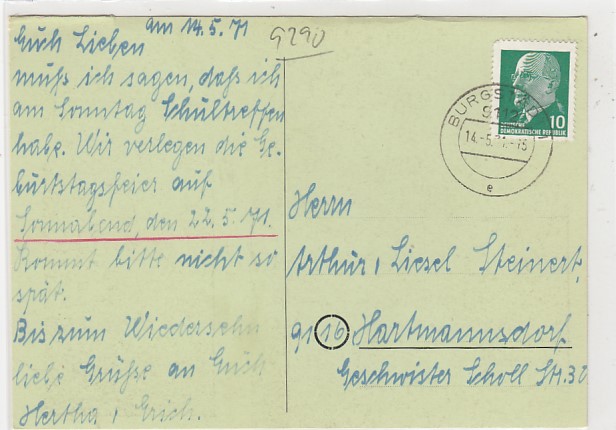 am 14.5.71
Euch Lieben
muß ich sagen, daß ich
am Sonntag Schultreffen
habe. Wir verlegen die Ge-
burtstagsfeier auf
Sonnabend, den 22.5.71.
Kommt bitte nicht so
spät.
Bis zum Wiedersehn
liebe Grüße an Euch
Hertha u. Erich.
9290
BURGSTÄDT
9112
14.-5.71-15
e
10
DEMOKRATISCHE REPUBLIK
Herrn
Arthur u. Liesel Steinert
9116 Hartmannsdorf
Geschwister Scholl Str. 32